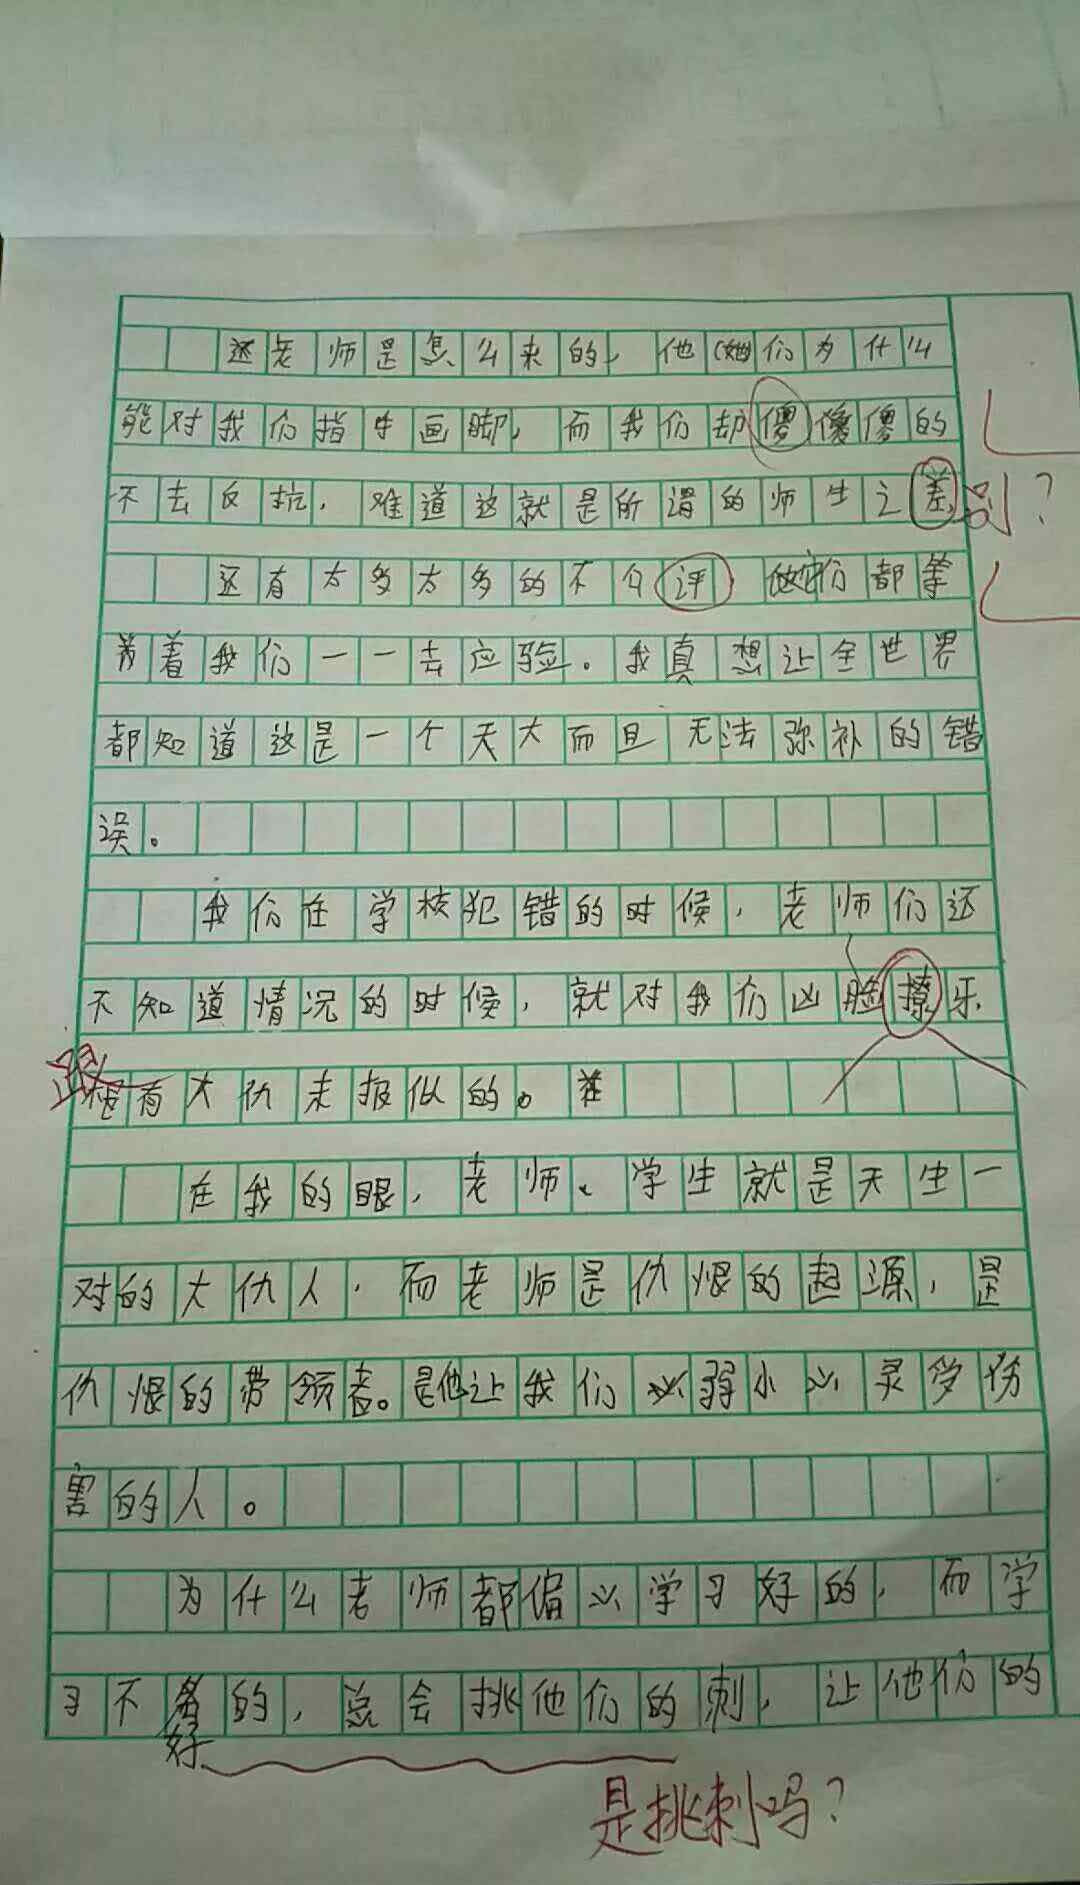 还老师是怎么来的，他(她)们为什么
能对我们指手画脚，而我们却傻傻傻的
不去反抗，难道这就是所谓的师生之差
别？
还有太多太多的不公评 他她们都等
着着我们一一去应验。我真想让全世界
都知道这是一个天大而且无法弥补的错
误。
我们在学校犯错的时候，老师们还
不知道情况的时候，就对我们凶脸撩牙
跟
有大仇未报似的。
在我的眼，老师、学生就是天生一
对的大仇人，而老师是仇恨的起源，是
仇恨的带领者。是他让我们弱小心灵受伤
害的人。
为什么老师都偏心学习好的，而学
习不
好
的，总会挑他们的刺，让他们的
是挑刺吗？